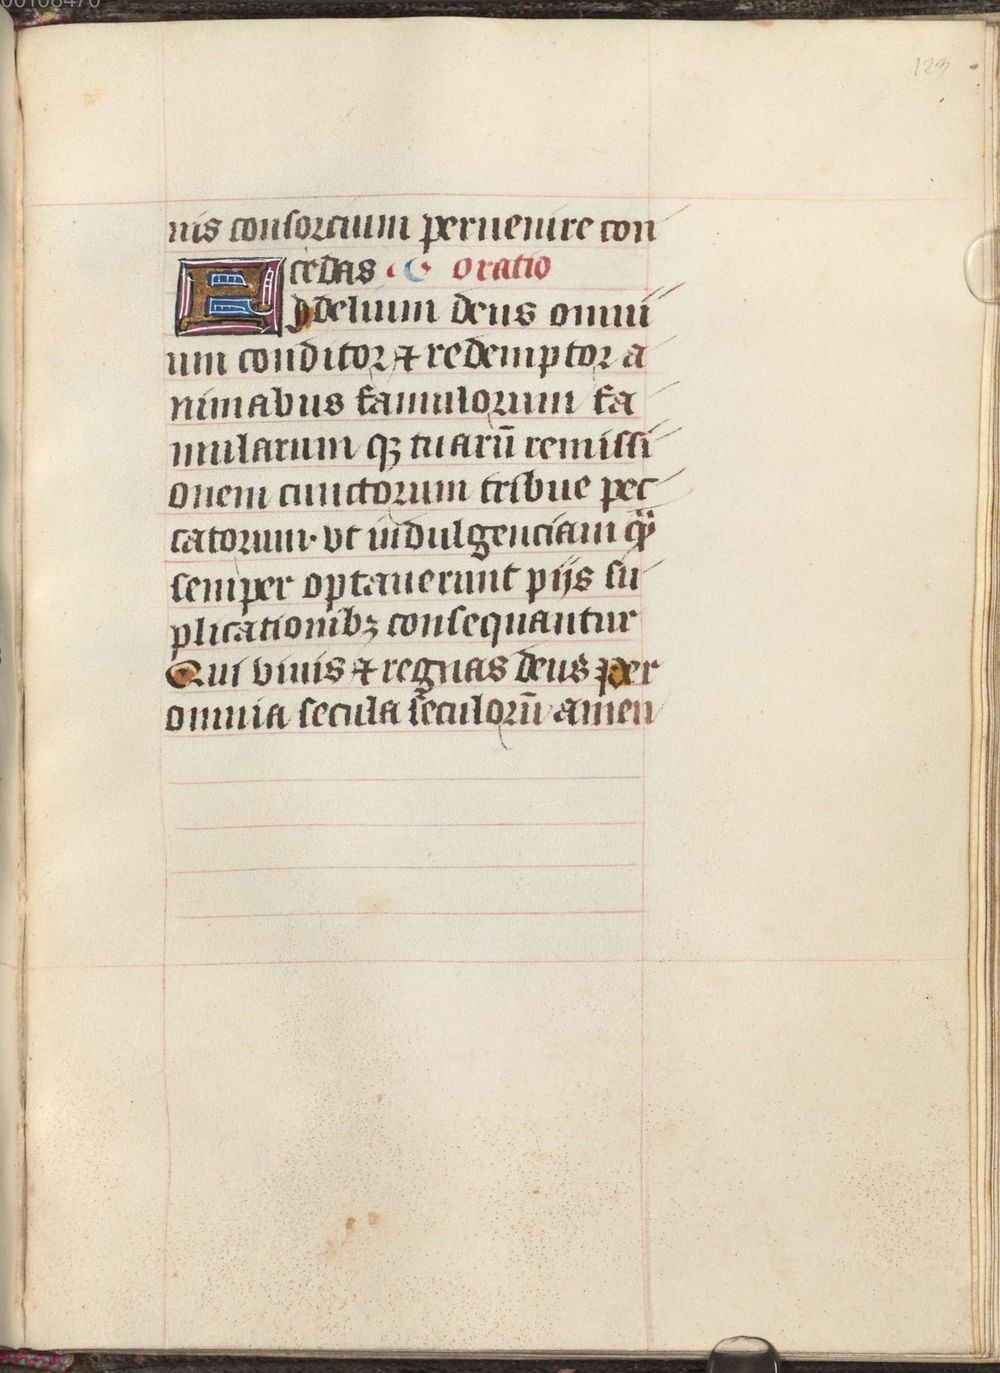 123
nis consorcium peruenire con
cedas oratio
Fidelium deus omni
um conditor ⁊ redemptor a
nimabus famulorum fa
mularum qꝫ tuarū remissi
onem cunctorum tribue pec
catorum· vt indulgenciam qͣ̄
semper optauerunt pijs su
plicationibꝫ consequantur
Qui viuis ⁊ regnas deus per
omnia secula seculorū amen